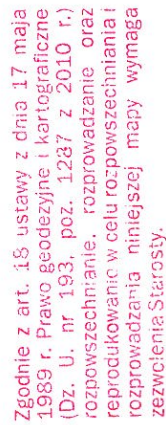 Zgodnie z art. 18 ustawy z dnia 17 maja
1989 r. Prawo geodezyjne i kartograficzne
(Dz. U. nr 193, poz. 1287 z 2010 r.)
rozpowszechnianie, rozprowadzanie oraz
reprodukowanie w celu rozpowszechniania i
rozprowadzania niniejszej mapy wymaga
zezwolenia Starosty.